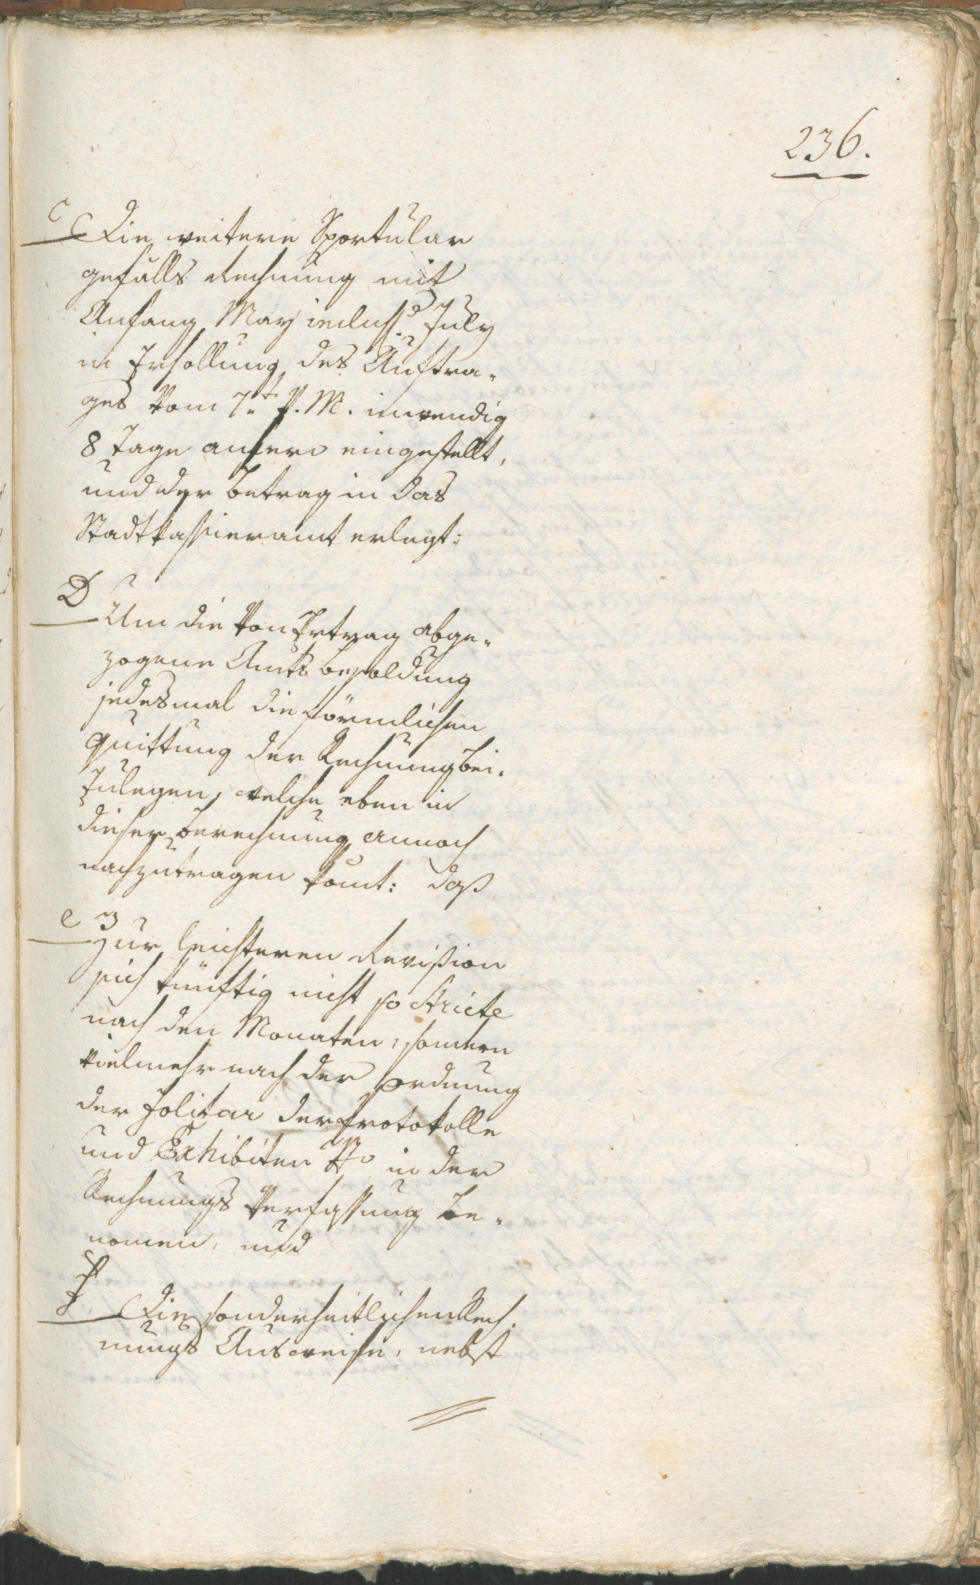 236.
C Die weitere Sportular
gefälls Rechnung mit
Anfang May inclus. July
in Erhollung des Auftra-
ges vom 7.t v. M. inwendig
8 Tage anhero eingestellt,
und der Betrag in das
Stadtkassieramt erlegt:
D Um die von Ertrag abge-
zogene Amts besoldung
jedesmal die förmlichen
Quittung der Rechnung bei-
zulegen, welche eben in
dieser Berechnung annoch
nachzutragen komt: daß
e Zur leichteren Revision
sich künftig nicht so stricte
nach den Monaten, sondern
vielmehr nach der Ordnung
der der Protokolle
und Exhibiten No in der
Rechnungs Verfassung be-
nomen, und
f Die sonderheitlichen Rech-
nungs Ausweise, nebst